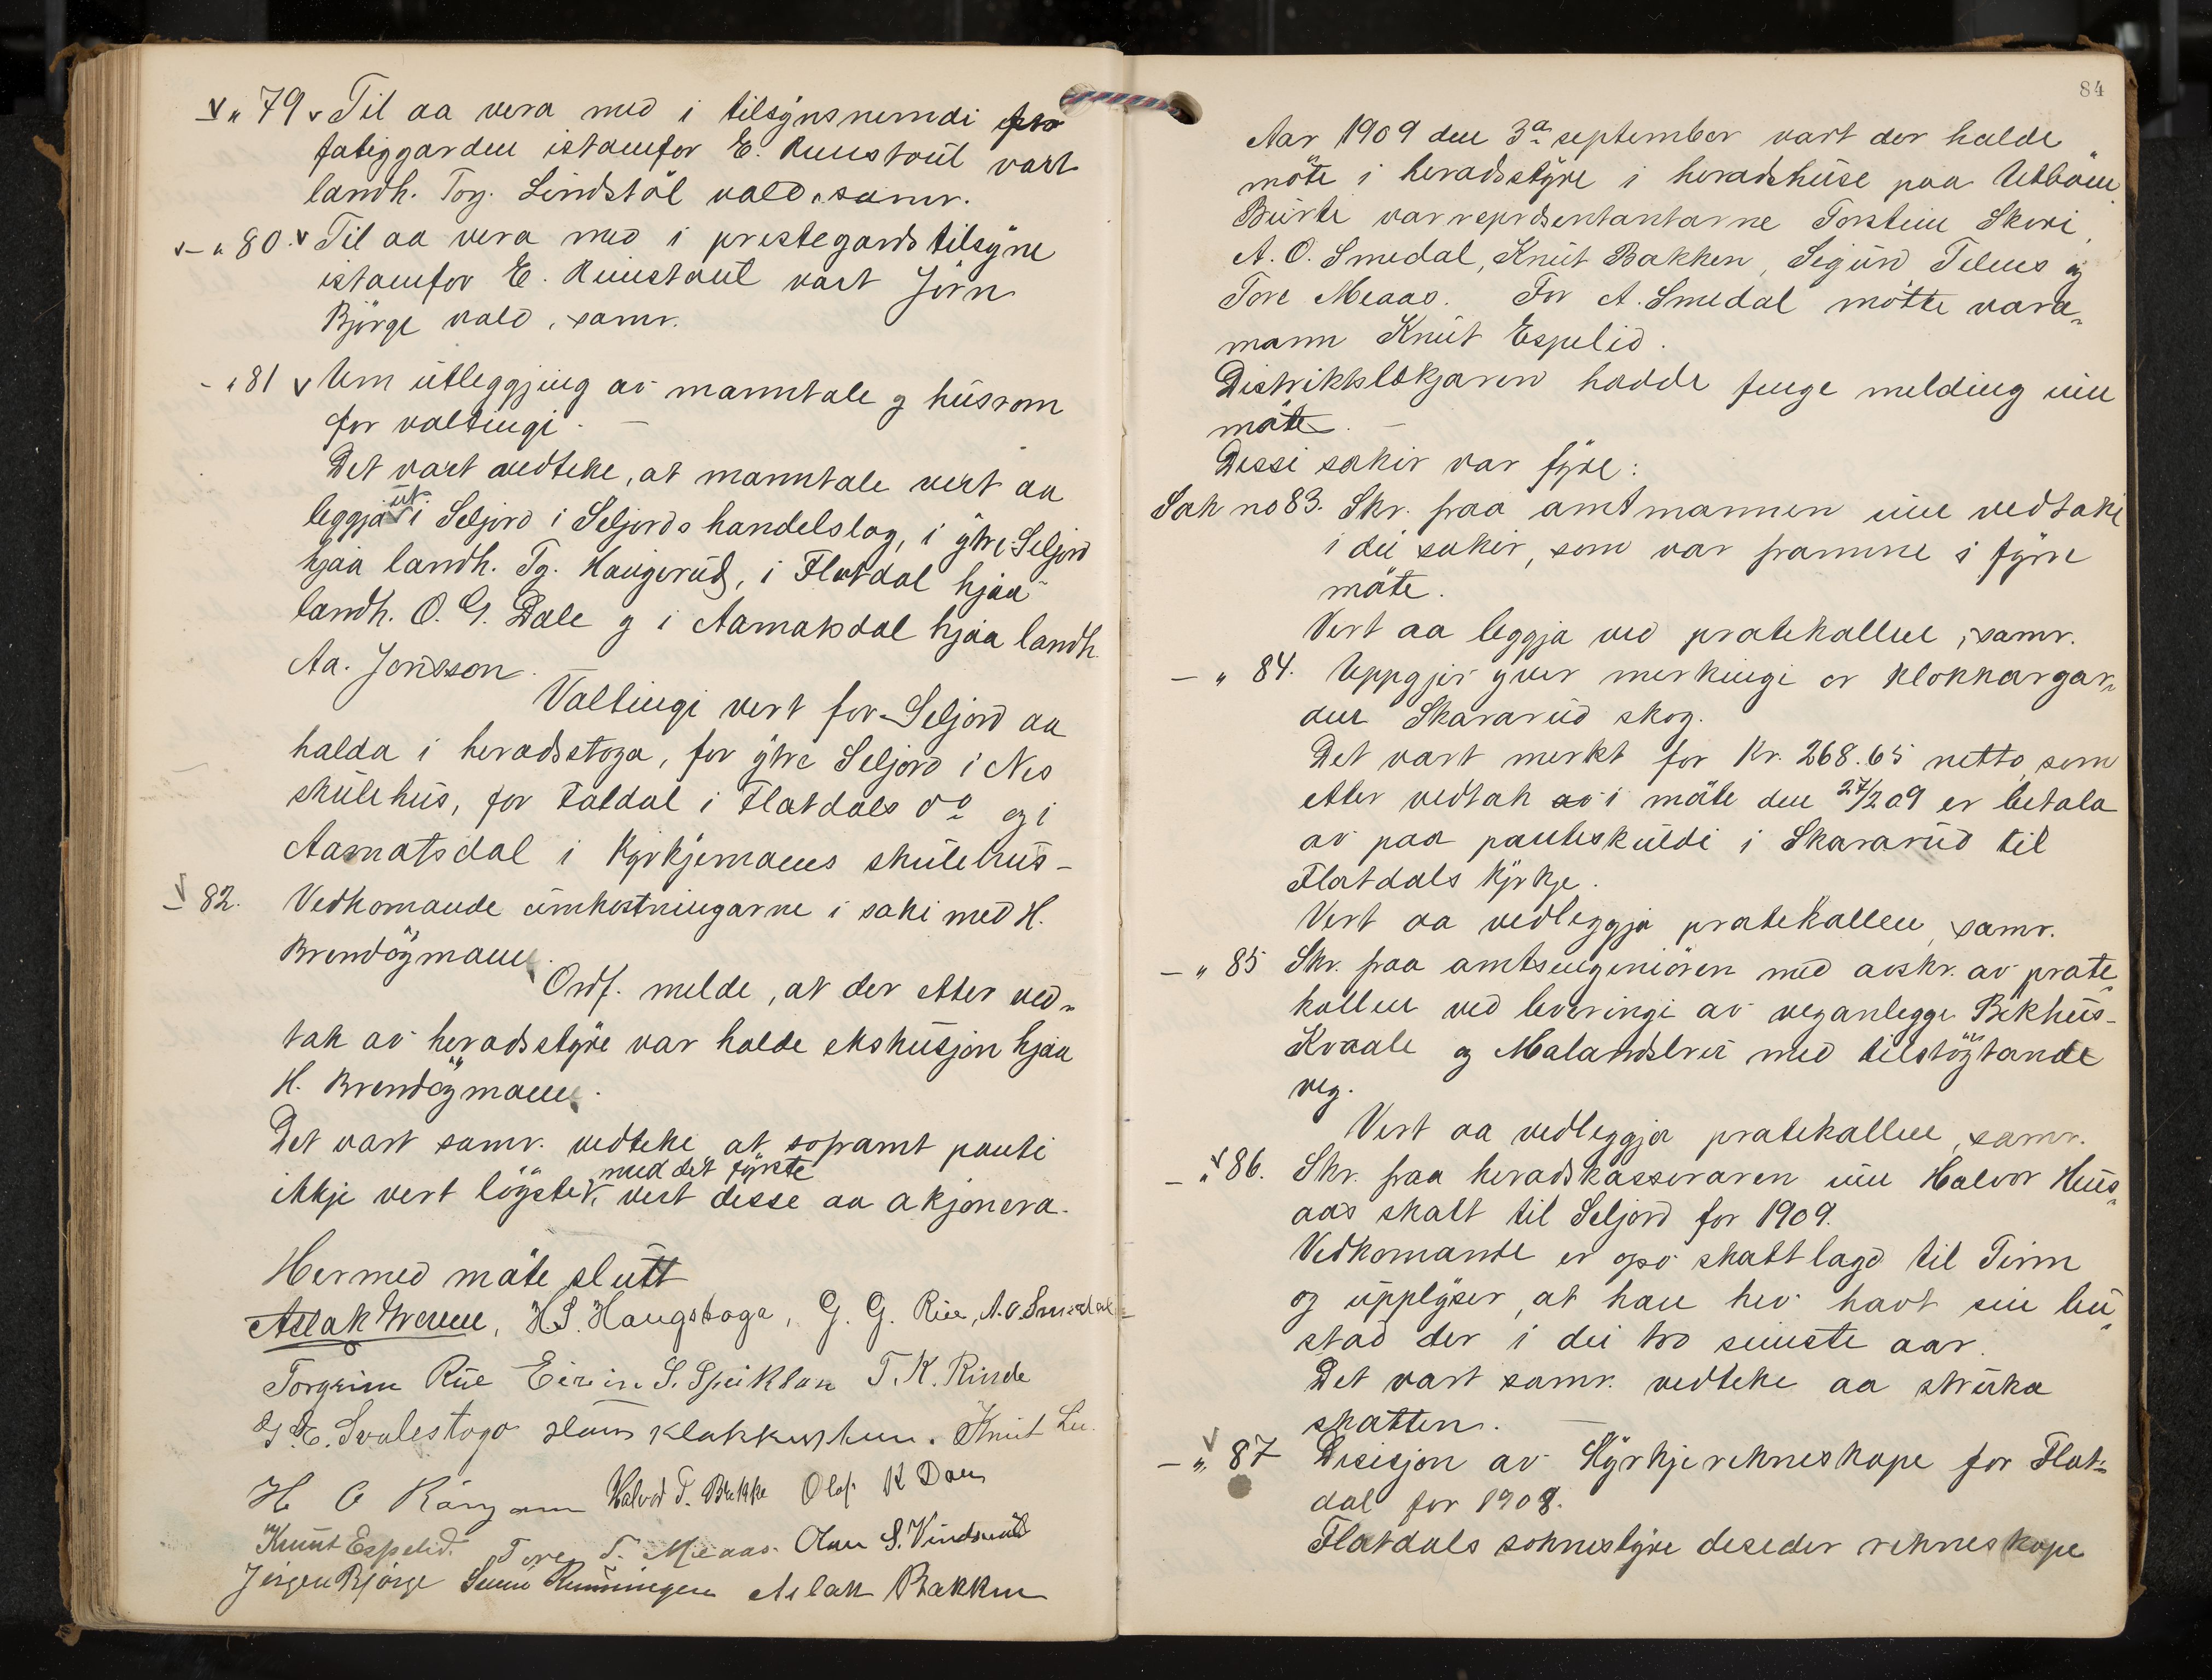 " 79 Til aa vera med i tilsynsnemdi
fatiggarden istaufor E. Kunstaul vart
landh. Torj. Lindstöl vald, samr.
- " 80. Til aa vera med i prestegardstilsyne
istaufor E. vart Jörn
Björge vald, samr.
- " 81 Um utleggjing av manntale og husrom
for valtingi. -
Det vart vedteke, at manntale vert aa
leggja ut i Seljord i Seljords handelslag, i ytre Seljord
hjaa landh. Tg. Haugerud, i Flatdal hjaa
landh. O. G. Dale og i Aamotsdal hjaa landh.
Aa. Jonsson.
Valtingi vert for Seljord aa
halda i heradsstoga, for ytre Seljord i Nes
skulehus, for Faldal i Flatdals do og i
Aamotsdal i Kyrkjemoens skulehus -
- 82. Vedkomande umkostningarne i saki med H.
Brendöymoen.
Ordf. melde, at der etter ved-
tak av heradsstyre var halde ekskusjon hjaa
H. Brendöymoen.
Det vart samr. vedteke at soframt panti
ikkje vert löyste med det fyrste, vert desse aa akjonera.
Hermed möte slutt
Aslak, H. S. Haugstoga, G. G. Rue, A. O. Smedal
Torgrim Rue Eivin S. T. K. Rinde
G. E. Svalestogo Knut
H O Halvor T. Bekke Olaf K Dale
Knut Espelid. Tore T. Meaas. Olav S. Vindsaul
Jörgen Björge Aslak Bakken
84
Aar 1909 den 3d september vart der halde
möte i heradsstyre i heradshuse paa Utböen.
Burte var representantarne Torstein Skori,
A. O. Smedal, Knut Bakken, Sigurd Telnes og
Tore Meaas. For A. Smedal mötte vara-
mann Knut Espelid.
Distriktslækjaren hadde fenge melding um
möte. -
Dessi sakir var fyre:
Sak no 83. Skr. fraa amtmannen um vedtaki
i dei sakir, som var framme i fyrre
möte.
Vert aa leggja ved protekollen, samr.
- " 84. Uppgjer yver merkingi or klokkargar-
den Skararud skog.
Det vart merkt for Kr. 268.65 netto, som
etter vedtak av i möte den 27/2 09 er betala
av paa panteskuldi i Skararud til
Flatdals Kyrkje.
Vert aa vedleggja protekollen, samr.
- " 85 Skr. fraa amtsingeniören med avskr. av prote-
kollen ved leveringi av veganlegge Bekhus-
Kvaale og Malandsbrui med tilstöytande
veg.
Vert aa vedleggja protekollen, samr.
- " 86. Skr. fraa heradskasseraren um Halvor Hus-
aas skatt til Seljord for 1909.
Vedkomande er ogso skattlagd til Tinn
og upplyser, at han hev havt sin bu-
stad der i dei tvo seinste aar.
Det vart samr. vedteke aa struka
skatten. -
- " 87 Disisjon av Kyrkjerekneskape for Flat-
dal for 1908.
Flatdals soknestyre deseder rekneskape